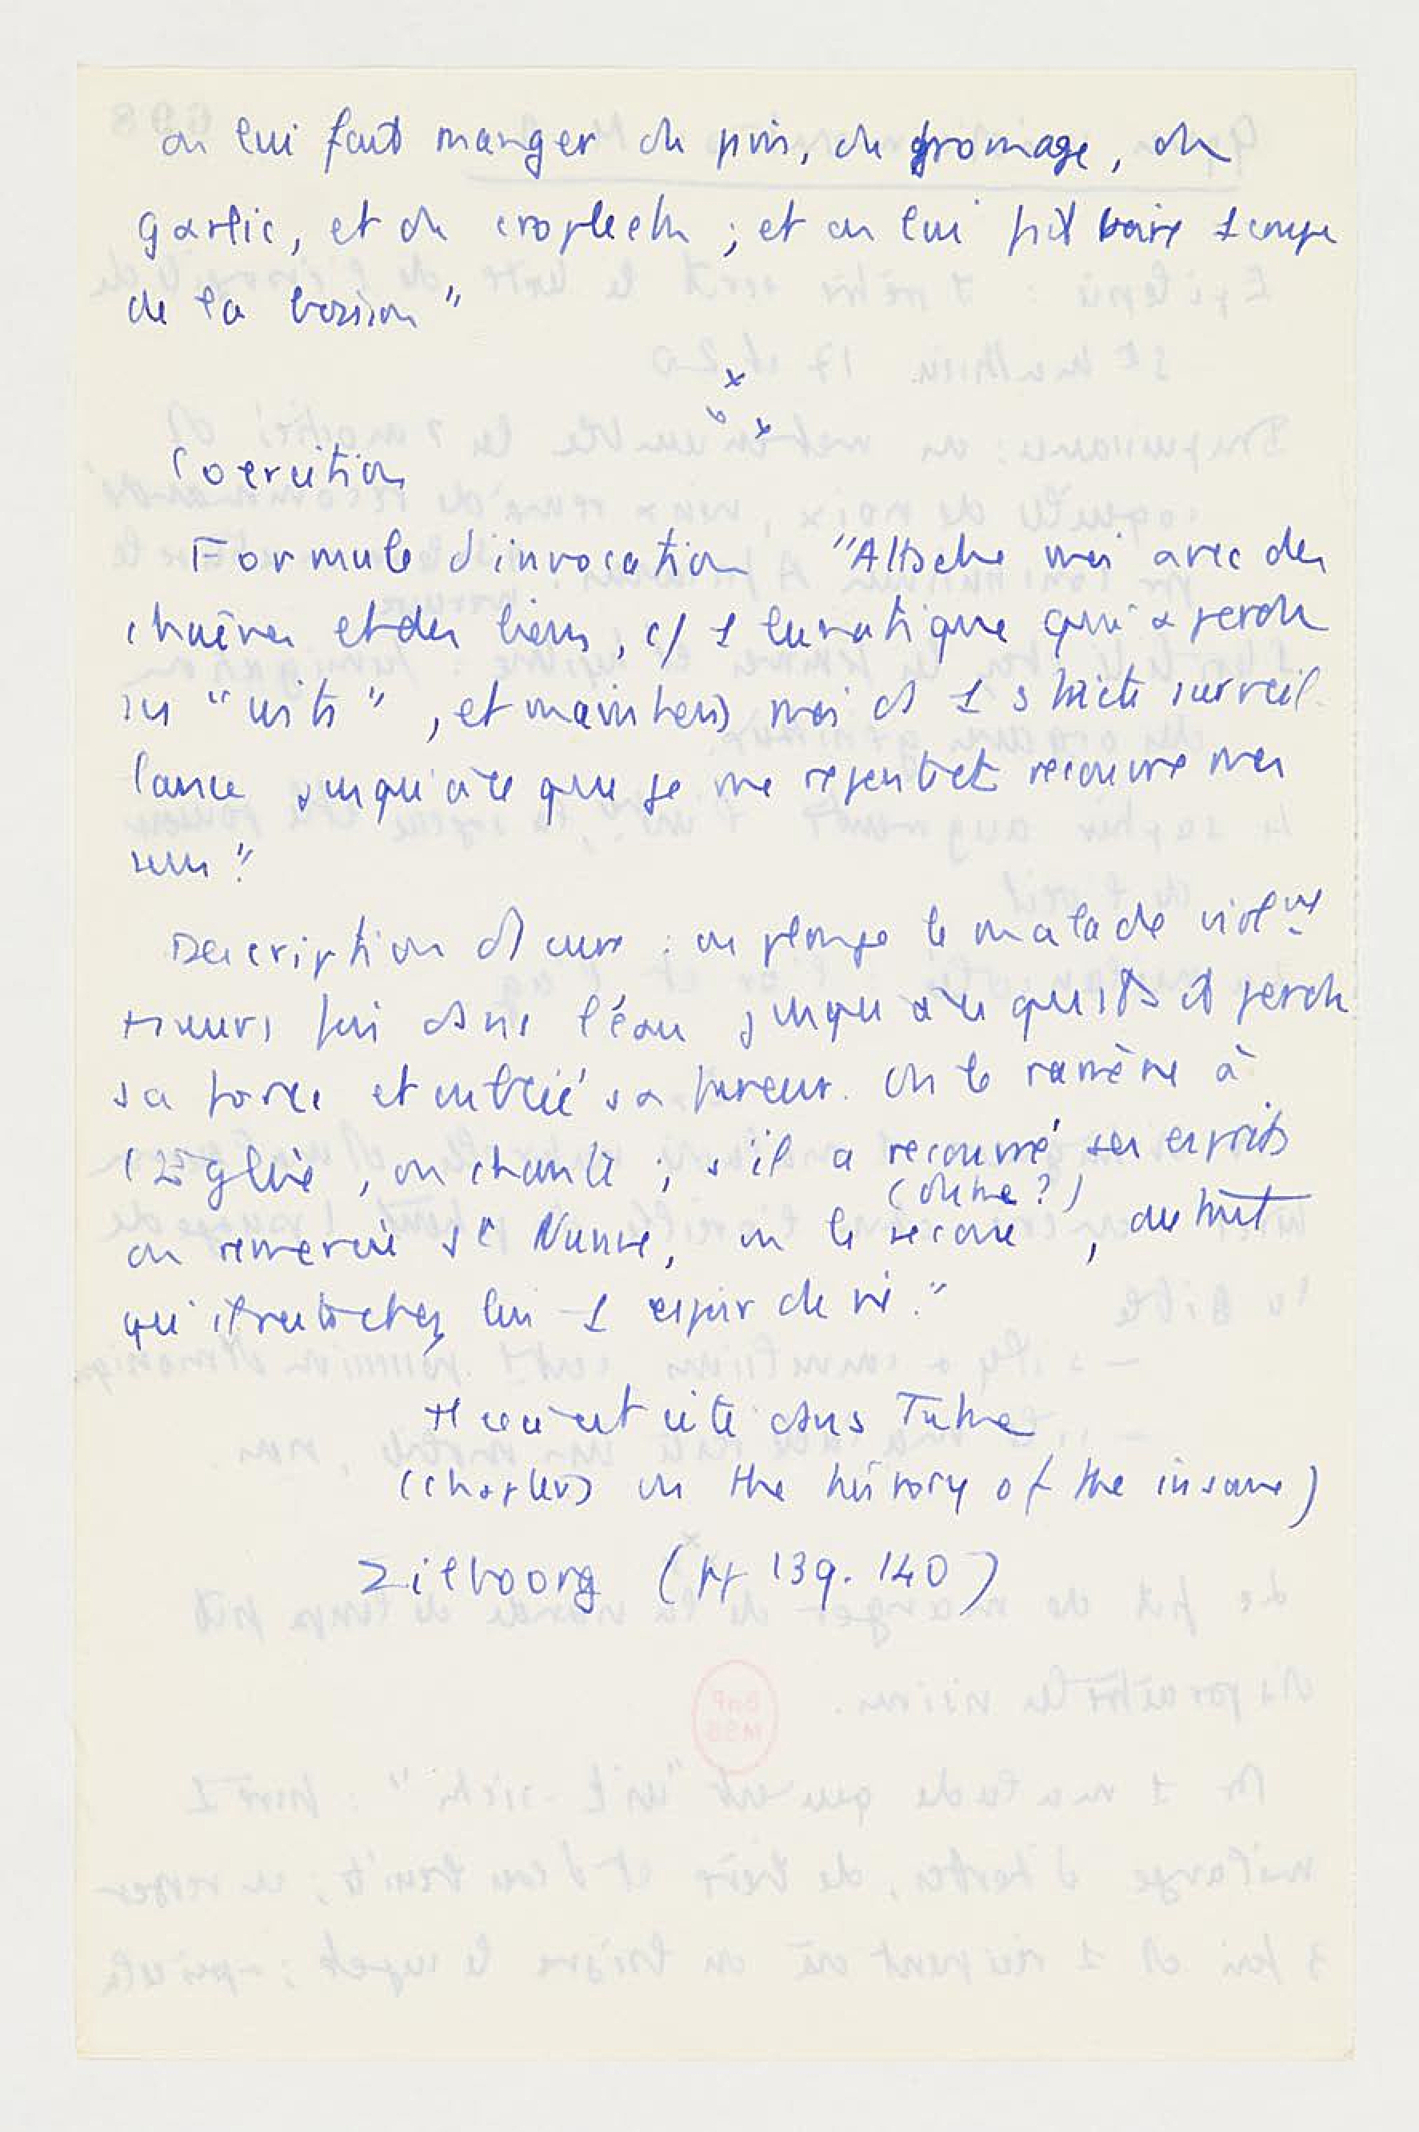 on lui fait manger du pain, du fromage, du
garlic, et du cropleek ; et on lui fait boire 1 coupe
de la boisson"
x
x x
Coercition
Formule d'invocation "Attache moi avec des
chaînes et des liens, c/ 1 lunatique qui a perdu
ses "wits", et maintiens moi ds 1 stricte surveil-
lance jusqu'à ce que je me repente et recouvre mes
sens".
Description d'1 cure : on plonge le malade violent
plusieurs fois dans l'eau jusqu'à ce qu'il ait perdu
sa force et oublié sa fureur. On le ramène à
l'Eglise, on chante ; s'il a recouvré ses esprits
on remercie St Nunne, on le secoue (drine ?), autant
qu'il reste chez lui 1 espoir de vie."
Ceci est cité dans Tuke
(Chapters in the history of the insane)
Zilboorg (pp 139-140)